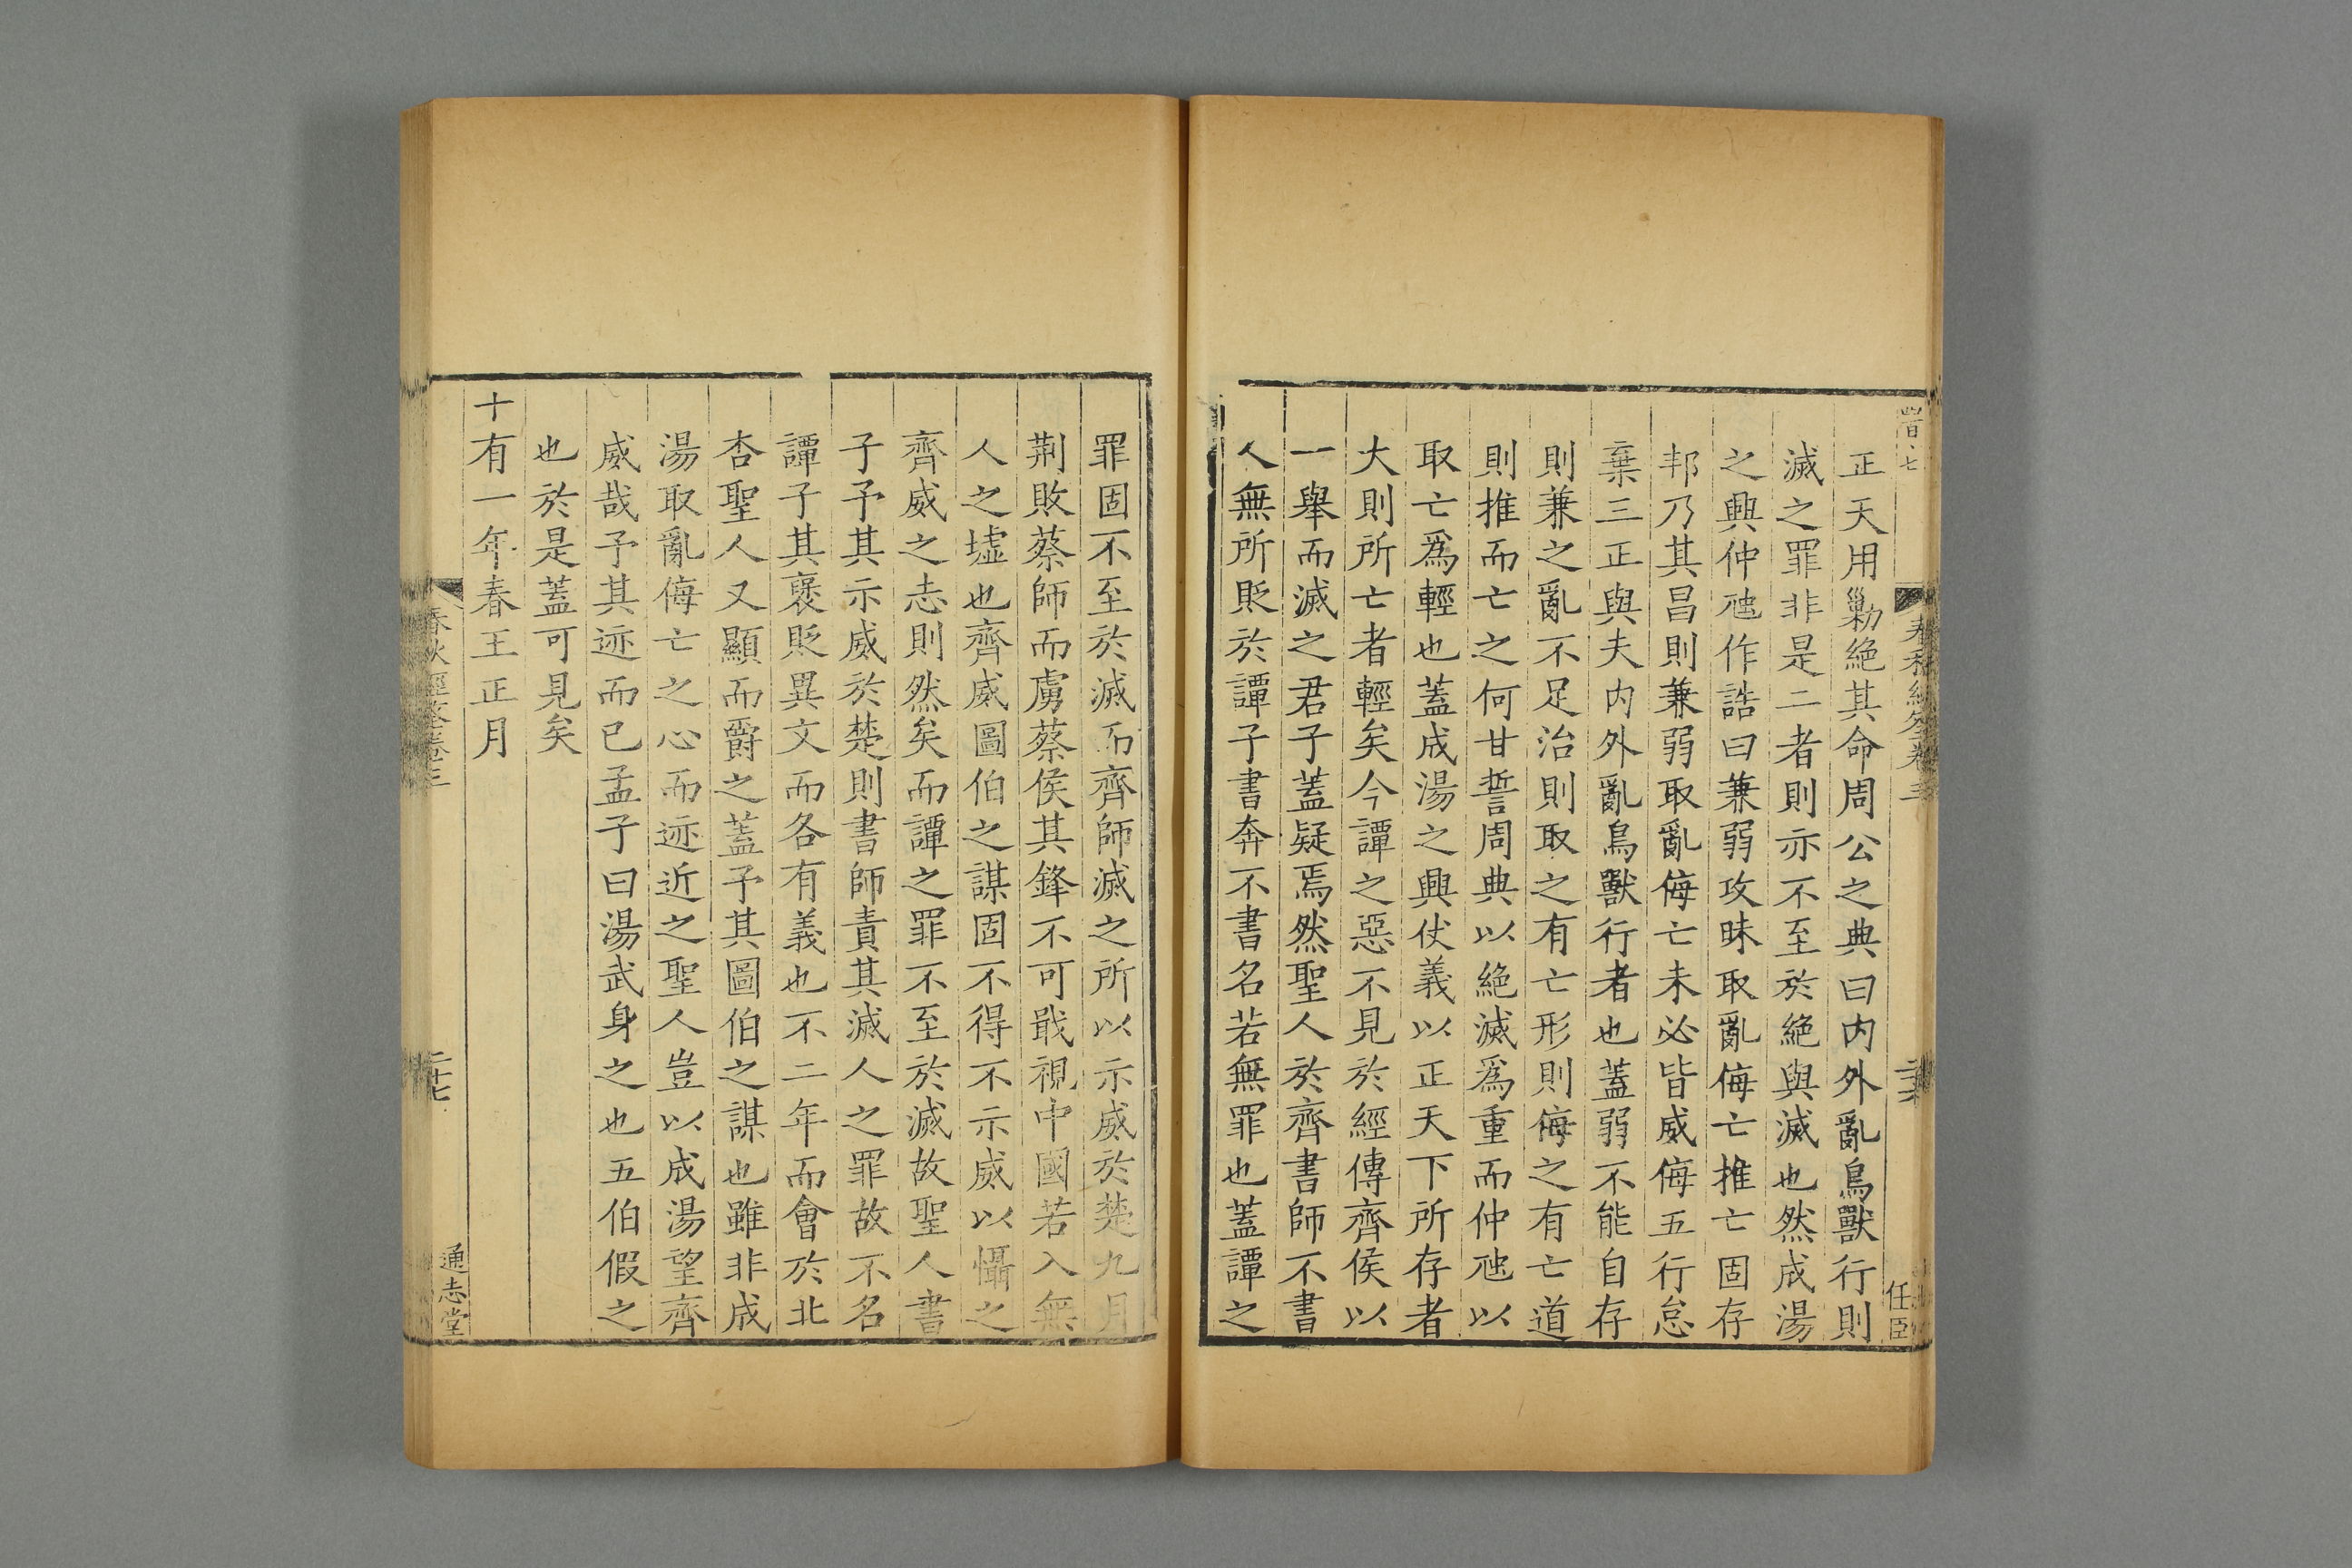 正天用勦絶其命周公之典曰内外亂鳥獸行則
滅之罪非是二者則亦不至於絶與滅也然成湯
之興仲虺作誥曰兼弱攻昧取亂侮亡推亡固存
邦乃其昌則兼弱取亂侮亡未必皆威侮五行怠
棄三正與夫内外亂鳥獸行者也蓋弱不能自存
則兼之亂不足治則取之有亡形則侮之有亡道
則推而亡之何甘誓周典以絶滅爲重而仲虺以
取亡爲輕也蓋成湯之興仗義以正天下所存者
大則所亡者輕矣今譚之惡不見於經傳齊侯以
一舉而滅之君子蓋疑焉然聖人於齊書師不書
人無所貶於譚子書奔不書名若無罪也蓋譚之
任臣
罪固不至於滅而齊師滅之所以示威於楚九月
荆敗蔡師而虜蔡侯其鋒不可戢視中國若入無
人之墟也齊威圖伯之謀固不得不示威以懾之
齊威之志則然矣而譚之罪不至於滅故聖人書
子予其示威於楚則書師責其滅人之罪故不名
譚子其襃貶異文而各有義也不二年而會於北
杏聖人又顯而爵之蓋予其圖伯之謀也雖非成
湯取亂侮亡之心而迹近之聖人豈以成湯望齊
威哉予其迹而已孟子曰湯武身之也五伯假之
也於是蓋可見矣
十有一年春王正月
二十七
通志堂